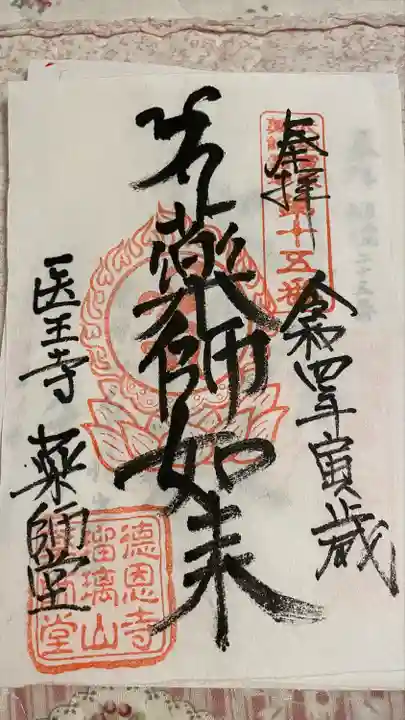 奉拝
令和四年寅歳
薬師如来
医王寺
薬師堂
十五番
德恩寺
瑠璃山
堂